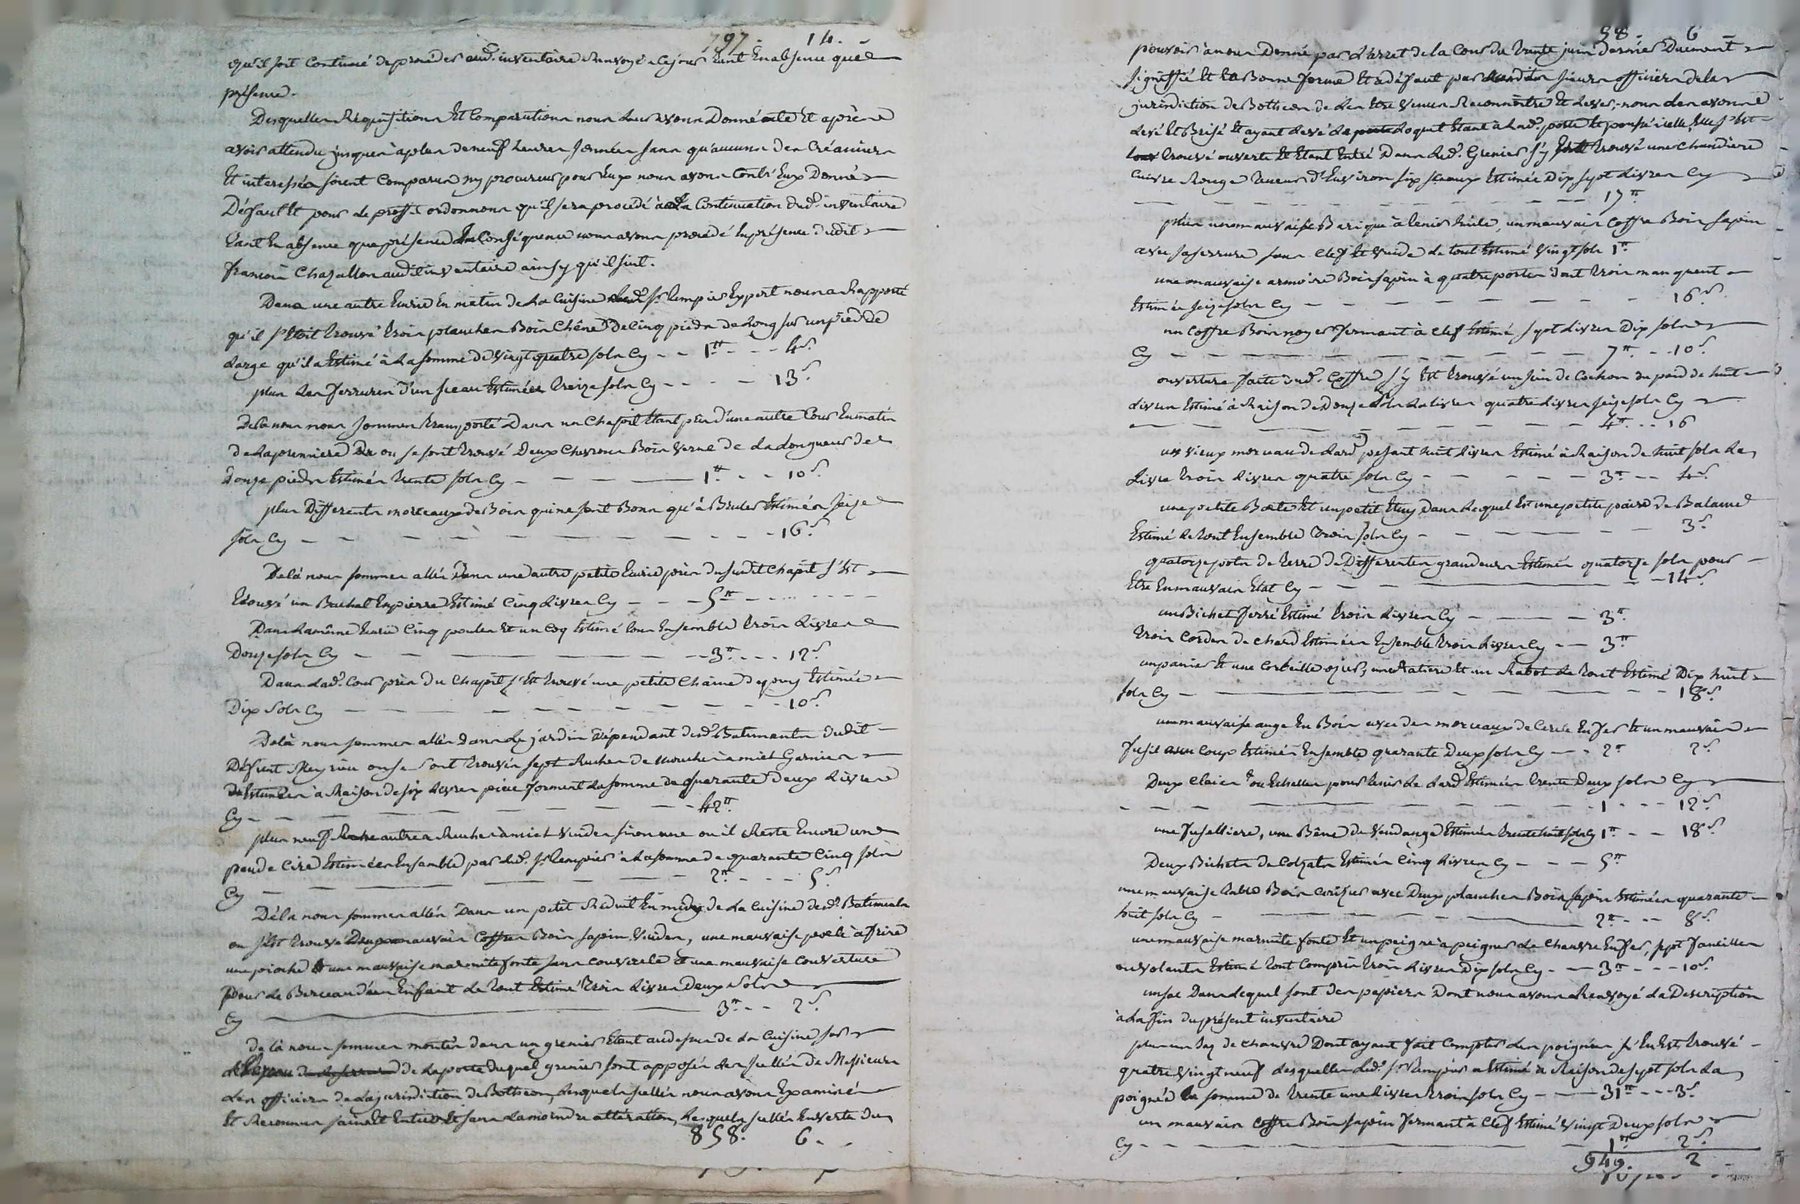 797. 14.
qu'il soit continué de proceder aud. inventaire renvoyé a ce jour tant en absence que
présence.
Desquelles Requisitions et Comparutions nous leur avons Donné acte et après
avoir attendu jusques après les neuf heures sonnées sans qu'aucuns des Créanciers
et interessés soient Comparus ny procureur pour Eux nous avons Contr'Eux Donné
Deffaut et pour le proffit ordonnons qu'il sera procédé à la Continuation dud. inventaire
tant En absence que présence En Conséquence nous avons procédé En présence dudit
françois Chazallon audit inventaire ainsy qu'il suit.
Dans une autre Ecurie En matin de la Cuisine led. Sr. Rempier Expert nous a Rapporté
qu'il s'Etoit trouvé trois planches Bois Chêne de Cinq pieds de Long sur un pied de
Large qu'il a Estimé à la somme de vingt quatre sols Cy - - 1tt - - - 4s.
plus les ferrures d'un sceau Estimées treize sols Cy - - - - 13s.
Delà nous nous sommes transporté Dans un Chapit Etant près d'une autre Cour En matin
de la première où se sont trouvé Deux Chevrons Bois Verne de la longueur de
Douze pieds Estimés trente sols Cy - - - 1tt - - 10s.
plus Differents morceaux de Bois qui ne sont Bons qu'à Bruler Estimés seize
sols Cy - - - - - - - 16s.
Delà nous sommes allés Dans une autre petite Ecurie près du susdit Chapit s'est
trouvé un Bachat En pierre Estimé Cinq Livres Cy - - - 5tt - - - -
Dans la même Ecurie Cinq poules Et un Coq Estimé le tout Ensemble trois Livres
Douze sols Cy - - - - 3tt - - - 12s.
Dans lad. Cour près du Chapit s'Est trouvé une petite Chaine de puy Estimée
Dix sols Cy - - - - - - - 10s.
Delà nous sommes allés Dans le jardin Dépendant desd. Batiments dudit
Deffunt Meyrieu où se sont trouvés sept Ruches de mouches à miel Garnies
Estimées à Raison de six Livres pièce forment la somme de quarante Deux Livres
Cy - - - - - - - 42tt
plus neuf autres Ruches à miel Vuides sinon une où il Reste Encore un
peu de Cire Estimées Ensemble par led. Sr. Rempier à la somme de quarante Cinq sols
Cy - - - - - - 2tt - - - 5s.
Delà nous sommes allés Dans un petit Reduit En midy de la Cuisine desd. Batiments
où s'Est trouvé Deux mauvais Coffres Bois sapin Vuides, une mauvaise poële à frire
une pioche Et une mauvaise marmite fonte sans Couvercle Et une mauvaise Couverture
pour le Berceau d'un Enfant le tout Estimé trois Livres Deux sols
Cy - - - 3tt - - 2s.
de là nous sommes montés dans un grenier Etant au dessus de la Cuisine sur
de la porte duquel grenier sont apposés des scellés de Messieurs
Les officiers de la jurisdiction de Bothéon, Lesquels scellés nous avons Examiné
Et Reconnus sains Et Entiers Et sans la moindre altération, Lesquels scellés En vertu du
858. 6.
58. 6
pouvoir à nous Donné par L'arret de la Cour du trente juin Dernier Duement
signiffié Et En Bonne forme Et à déffaut par lesdits sieurs officiers de la
jurisdiction de Botheon de Les Etre venus Reconnoitre Et Lever, nous les avons
Levé Et Brisé Et ayant Levé le Loquet Etant à lad. porte Et poussé icelle, Elle s'Est
trouvé ouverte Et Etant Entré Dans led. Grenier s'y Est trouvé une Chaudière
Cuivre Rouge teneur d'Environ six sceaux Estimée Dix sept Livres Cy
- - - - - - - 17tt
plus une mauvaise Barique à tenir huile, un mauvais Coffre Bois sapin
avec sa serrure sans Clef Et Vuide le tout Estimé Vingt sols 1tt
une mauvaise armoire Bois sapin à quatre portes dont trois manquent
Estimée seize sols Cy - - - - - - 16s.
un Coffre Bois noyer fermant à Clef Estimé sept Livres Dix sols
Cy - - - - - - 7tt - - 10s.
ouverture faite dud. Coffre s'y Est trouvé un sein de Cochon du poid de huit
Livres Estimé à Raison de Douze sols La livre quatre Livres seize sols Cy
- - - - - - 4tt - - 16
un vieux morceau de Lard pesant huit Livres Estimé à Raison de huit sols La
Livre trois Livres quatre sols Cy - - - - 3tt - - 4s.
une petite Boete Et un petit Etuy Dans lequel Est une petite paire de Balance
Estimé le tout Ensemble trois sols Cy - - - - - 3s.
quatorze pots de terre de Differentes grandeurs Estimés quatorze sols pour
Etre En mauvais Etat Cy - - - - - 14s.
un Bichet ferré Estimé trois Livres Cy - - - 3tt
trois Cordes de Chard Estimées Ensemble trois Livres Cy - - 3tt
un panier Et une Corbeille ozier, une Ratiere Et un Rabot le tout Estimé Dix huit
sols Cy - - - - - - - 18s.
une mauvaise auge En Bois avec des morceaux de Cercle En fer Et un mauvais
fusil à un Coup Estimés Ensemble quarante Deux sols Cy - - 2tt 2s.
Deux Claies ou Echelles pour tenir le Lard Estimées trente Deux sols Cy
- - - - - - - 1 - - - 12s.
une fusellière, une Bêne de Vendange Estimées trente huit sols Cy 1tt - - 18s.
Deux Bichets de Colzats Estimés Cinq Livres Cy - - - 5tt
une mauvaise table Bois Cerisier avec Deux planches Bois sapin Estimées quarante
huit sols Cy - - - - - 2tt - - 8s.
une mauvaise marmite fonte Et un peigne à peigner le Chanvre En fer, sept faucilles
ou volants Estimé tout Compris trois Livres Dix sols Cy - - 3tt - - - 10s.
un sac Dans lequel sont des papiers Dont nous avons Renvoyé la Description
à la fin du présent inventaire
plus un tas de Chanvre Dont ayant fait Compter les poignées s'En Est trouvé
quatre Vingt neuf desquelles led. Sr. Rempier a Estimé à Raison de sept sols La
poignée la somme de trente une Livres trois sols Cy - - - 31tt - - - 3s.
un mauvais Coffre Bois sapin fermant à Clef Estimé Vingt Deux sols
Cy - - - - - - 1tt 2s.
949. 2